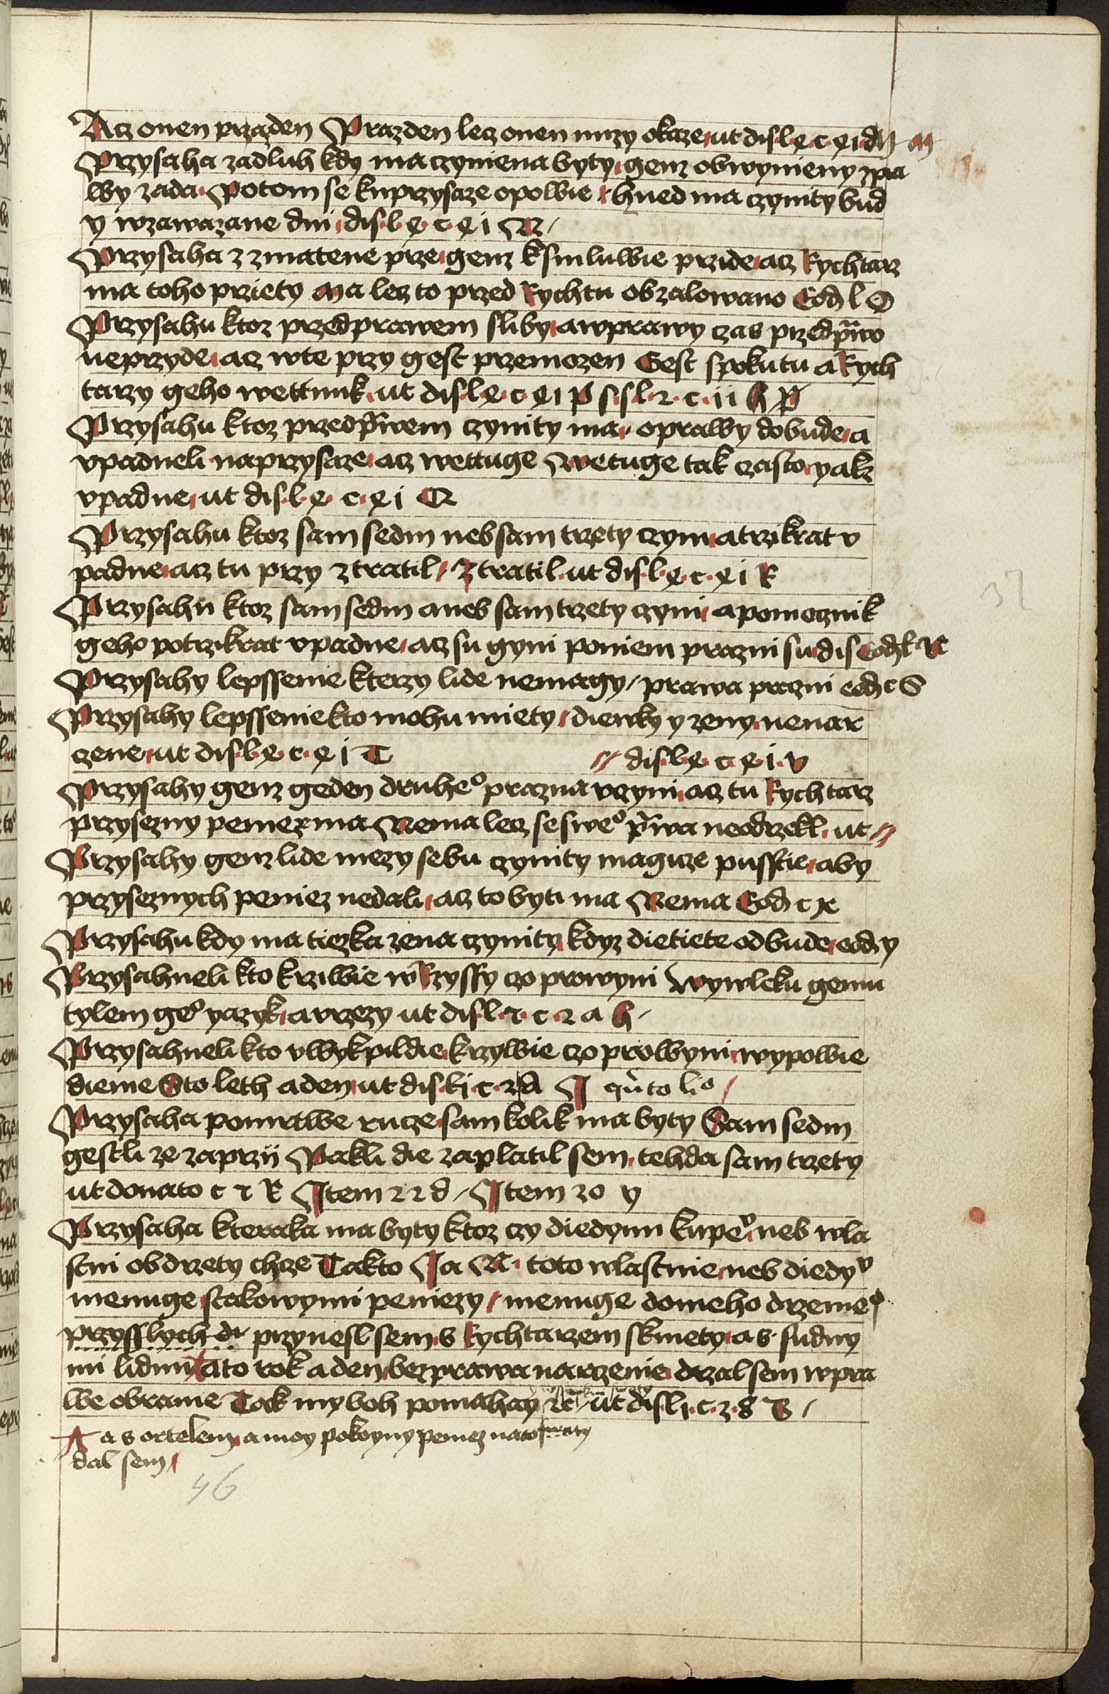 Acz onen przazden Prazden lecz onen mizy okaze ut dis l e c e i dn m
Przysaha zadluh kdy ma czyniena byty genz obwynieny zpra
wy zada Potom se kuprzysaze opowie hned ma czynity bud
y wzawazane dni dis l e c e i N
Przysaha z zmatene prze genz k smluwie przide acz Rychtarz
ma toho prziety Ma lecz to przed Rychtu obzalowano Eod l O
Przysahu ktoz przed prawem sliby a wprawy czas przed prwo
neprzyde acz wte przy gest przemozen Gest spokutu a Rych
tarzy geho wettunk ut dis l e c e i p s s l 2 c ii h p
Przysahu ktoz przed prwem czynity ma oprawy dobude a
vpadneli naprzysaze acz wettuge Wetuge tak czasto yakz
vpadne ut dis l e c e i Q
Przysahu ktoz sam sedm neb sam trzety czyni a trzikrat v
padne acz tu przy ztratil Ztratil ut dis l e c e i R
Przysahu ktoz sam sedm aneb sam trzety czyni a pomocznik
geho potrzikrat vpadne acz su gyni poniem prazni su dis Eod l R
Przysahy lepssenie kterzy lide nemagy prawa prazni eod c S
Przysahy lepssenie kto mohu miety diewky y zeny nenar
czene ut dis l e c e i T // dis l e c e i v
Przysahy genz geden druheo prazna vczyni acz tu Rychtarz
przysezny peniez ma Nema lecz se sweo prwa neodrzekl ut //
Przysahy genz lide mezy sebu czynity magicze pusstie aby
przyseznych peniez nedali acz to byti ma Nema Eod c x
Przysahu kdy ma tiezka zena czynity kdyz dietiete odbude eod y
Przysahneli kto krziwie w Rzyssy czo prowyni Wywleku gemu
tylem geo yazyk a vrzezy ut dis l 2 c 2 a h
Przysahneli kto vwykpildie krzywie czo prowyni wypowie
dieme Sto leth a den ut dis l i c 2 A
Przysaha pomrtwe rucze sam kolik ma byty Sam sedm
gestli ze zaprzij Pakli die zaplatil sem tehda sam trzety
ut donato c 2 R Item 22 d Item 20 y
Przysaha kteraka ma byty ktoz czy diedynu kupeo neb wla
stni obdrzety chcze Takto Ja N toto wlastnie neb diedyo
menuge stakowymi peniezy menuge domeho drzenieo
przysslych di przynesl sem s Rychtarzem skmety a s sudny
mi lidmi a to rok a den bez prawa narzenie drzal sem wpra
we obranie Tak my boh pomahay etc ut dis l i c 2 8 B
A a s ortelem a moy pokoyny peniez nato
dal sem
46
37